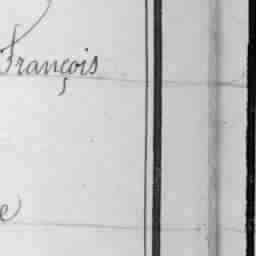 François
e